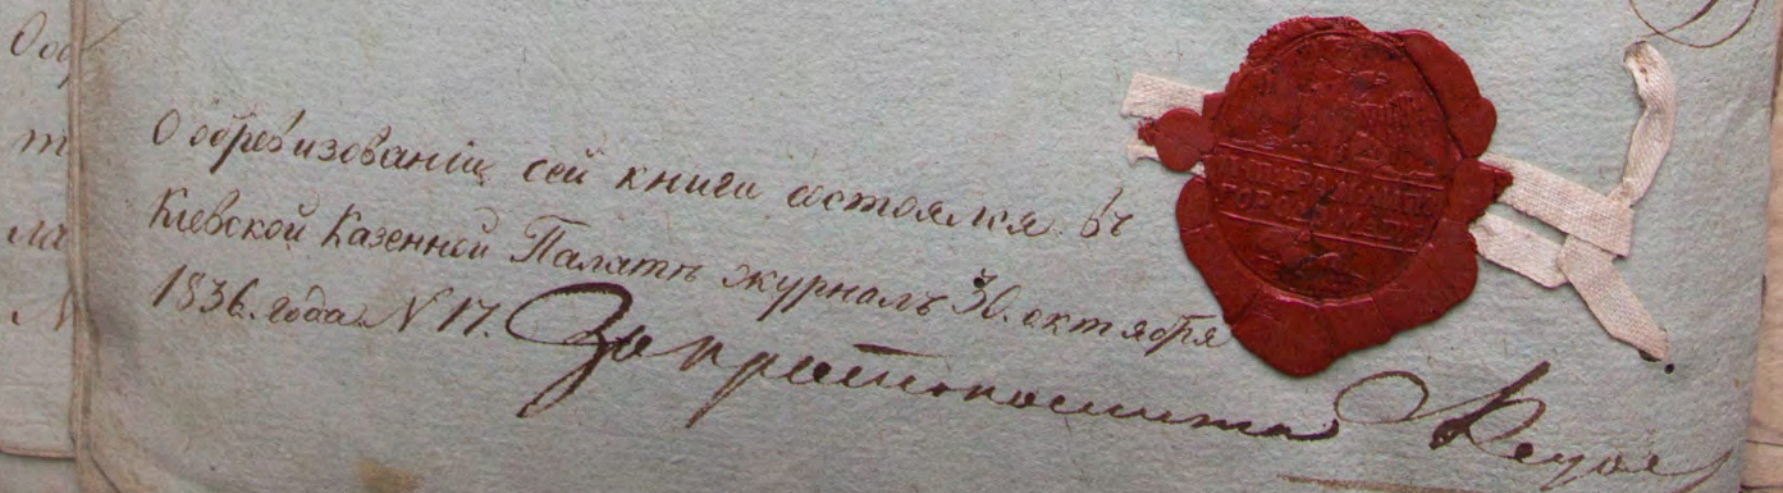 О обревизованіи сей книги состоялся въ
Кіевской Казенной Палатѣ журналъ 30. октября
1836. года N 17.
За